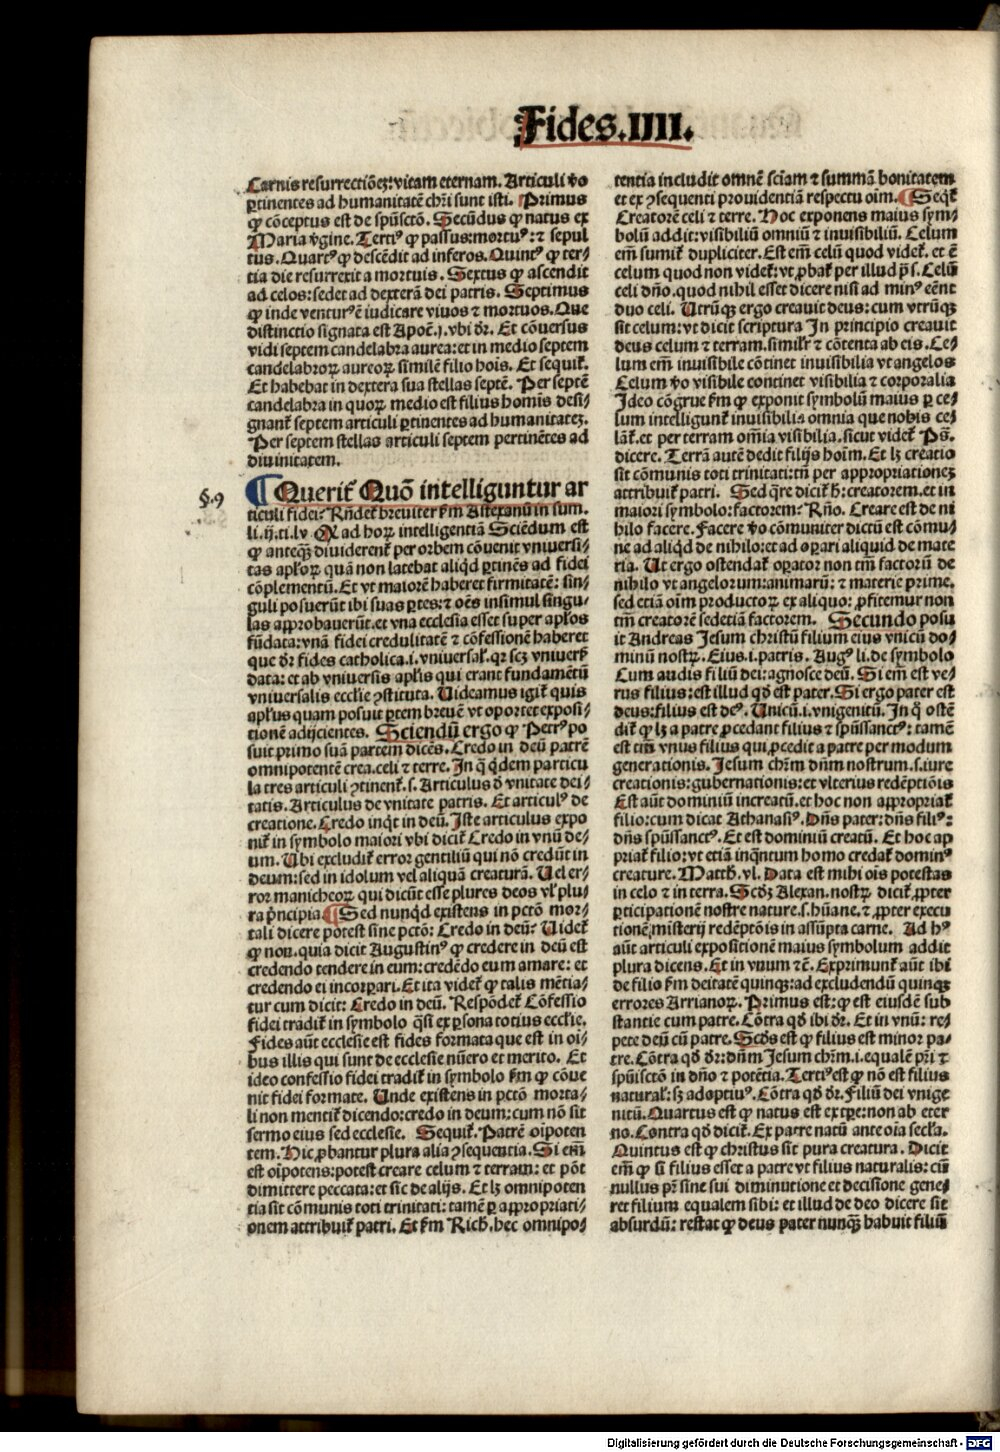 Fides.IIII.
Carnis resurrectiōeꝫ: vitam eternam. Articuli ꝟo
ꝑtinentes ad humanitatē chr̄i sunt isti. Primus
ꝙ cōceptus est de spūsctō. Secūdus ꝙ natus ex
Maria ꝟgine. Tertiꝰ ꝙ passus: mortuꝰ: ⁊ sepul
tus. Quartꝰ ꝙ descēdit ad inferos. Quintꝰ ꝙ ter⸗
tia die resurrexit a mortuis. Sextus ꝙ ascendit
ad celos: sedet ad dexterā dei patris. Septimus
ꝙ inde venturꝰ ē iudicare viuos ⁊ mortuos. Que
distinctio signata est Apoc̄.j. vbi dr̄. Et cōuersus
vidi septem candelabra aurea: et in medio septem
candelabroꝝ aureoꝝ similē filio hoīs. Et sequit᷑.
Et habebat in dextera sua stellas septē. Per septē
candelabra in quoꝝ medio est filius homis desi⸗
gnant᷑ septem articuli ꝑtinentes ad humanitateꝫ.
Per septem stellas articuli septem pertinētes ad
diuinitatem.
§.9
Querit᷑ Quō intelliguntur ar
ticuli fidei? Rn̄det᷑ breuiter ẜm Astexanū in sum.
li.ij.ti.lv Q ad hoꝝ intelligentiā Sciēdum est
ꝙ anteqꝫ diuiderent᷑ per orbem cōuenit vniuersi⸗
tas apl'oꝝ quā non latebat aliqd ꝑtinēs ad fidei
cōplementū. Et vt maiorē haberet firmitatē: sin⸗
guli posuerūt ibi suas ꝑtes: ⁊ oēs insimul singu⸗
las approbauerūt. et vna ecclesia esset super apl'os
fūdata: vnā fidei credulitatē ⁊ cōfessionē haberet
que dr̄ fides catholica.i. vniuersal'. qꝛ scꝫ vniuerẜ
data: et ab vniuersis apl'is qui erant fundamētū
vniuersalis eccl'ie ꝯstituta. Uideamus igit᷑ quis
apl'us quam posuit ꝑtem breuē vt oportet exposi⸗
tionē adijcientes. Sciendū ergo ꝙ Petrꝰ po
suit primo suā partem dicēs. Credo in deū patrē
omnipotentē crea. celi ⁊ terre. In q̄ qdem particu
la tres articuli ꝯtinent᷑.s. Articulus ð vnitate dei⸗
tatis. Articulus de vnitate patris. Et articulꝰ de
creatione. Credo inqt in deū. Iste articulus expo
nit᷑ in symbolo maiori vbi dicit᷑ Credo in vnū de⸗
um. Ubi excludit᷑ error gentiliū qui nō credūt in
deum: sed in idolum vel aliquā creaturā. Uel er⸗
ror manicheoꝝ qui dicūt esse plures deos vl' plu⸗
ra pͥncipia. Sed nunqd existens in pctō mor⸗
tali dicere potest sine pctō: Credo in deū? Uidet᷑
ꝙ non. quia dicit Augustinꝰ ꝙ credere in deū est
credendo tendere in eum: credēdo eum amare: et
credendo ei incorꝑari. Et ita videt᷑ ꝙ talis mētia⸗
tur cum dicit: Credo in deū. Respōdet᷑ Cōfessio
fidei tradit᷑ in symbolo q̄si ex ꝑsona totius eccl'ie.
Fides aūt ecclesie est fides formata que est in oi⸗
bus illis qui sunt de ecclesie nūero et merito. Et
ideo confessio fidei tradit᷑ in symbolo ẜm ꝙ cōue
nit fidei formate. Unde existens in pctō morta⸗
li non mentit᷑ dicendo: credo in deum: cum nō sit
sermo eius sed ecclesie. Sequit᷑. Patrē oīpoten
tem. Hic ꝓbantur plura alia ꝯsequentia. Si em̄
est oīpotens: potest creare celum ⁊ terram: et pōt
dimittere peccata: et sic de alijs. Et lꝫ omnipoten
tia sit cōmunis toti trinitati: tamē ꝑ appropriati⸗
onem attribuit᷑ patri. Et ẜm Rich. hec omnipo⸗
tentia includit omnē sciam ⁊ summā bonitatem
et ex ꝯsequenti prouidentiā respectu oīm. Seqt᷑
Creatorē celi ⁊ terre. Hoc exponens maius sym⸗
bolū addit: visibiliū omniū ⁊ inuisibiliū. Celum
em̄ sumit᷑ dupliciter. Est em̄ celū quod videt᷑. et ē
celum quod non videt᷑: vt ꝓbat᷑ per illud ps̄. Celū
celi dn̄o. quod nihil esset dicere nisi ad minꝰ eēnt
duo celi. Utrūqꝫ ergo creauit deus: cum vtrūqꝫ
sit celum: vt dicit scriptura In principio creauit
deus celum ⁊ terram. simil'r ⁊ cōtenta ab eis. Ce⸗
lum em̄ inuisibile cōtinet inuisibilia vt angelos
Celum ꝟo visibile continet visibilia ⁊ corporalia
Ideo cōgrue ẜm ꝙ exponit symbolū maius ꝑ ce⸗
lum intelligunt᷑ inuisibilia omnia que nobis ce⸗
lāt᷑. et per terram om̄ia visibilia. sicut videt᷑ Ps̄.
dicere. Terrā autē dedit filijs hoīm. Et lꝫ creatio
sit cōmunis toti trinitati: tn̄ per appropriationeꝫ
attribuit᷑ patri. Sed q̄re dicit᷑ h̄: creatorem. et in
maiori symbolo: factorem? Rn̄o. Creare est de ni
hilo facere. Facere ꝟo cōmuniter dictū est cōmu⸗
ne ad aliqd de nihilo: et ad oꝑari aliquid de mate
ria. Ut ergo ostendat᷑ oꝑator non tm̄ factorū de
nihilo vt angelorum: animarū: ⁊ materie prime.
sed etiā oīm productoꝝ ex aliquo: ꝓfitemur non
tm̄ creatorē sed etiā factorem. Secundo posu
it Andreas Jesum christū filium eius vnicū do⸗
minū nostꝝ. Eius.i. patris. Augꝰ li. de symbolo
Cum audis filiū dei: agnosce deū. Si em̄ est ve⸗
rus filius: est illud qð est pater. Si ergo pater est
deus: filius est deꝰ. Unicū.i. vnigenitū. In q̄ ostē
dit᷑ ꝙ lꝫ a patre ꝓcedant filius ⁊ spūssanctꝰ: tamē
est tm̄ vnus filius qui ꝓcedit a patre per modum
generationis. Jesum chr̄m dn̄m nostrum.s. iure
creationis: gubernationis: et vlterius redēptiōis
Est aūt dominiū increatū. et hoc non appropriat᷑
filio: cum dicat Athanasiꝰ. Dn̄s pater: dn̄s filiꝰ:
dn̄s spūssanctꝰ. Et est dominiū creatū. Et hoc ap
priat᷑ filio: vt etiā inqntum homo credat᷑ dominꝰ
creature. Matth. vl. Data est mihi oīs potestas
in celo ⁊ in terra. Scðꝫ Alexan. nostꝝ dicit᷑ ꝓpter
ꝑticipationē nostre nature.s. hūane. ⁊ ꝓpter execu
tionē misterij redēptōis in assūpta carne. Ad hꝰ
aūt articuli expositionē maius symbolum addit
plura dicens. Et in vnum ⁊c̄. Exprimunt᷑ aūt ibi
de filio ẜm deitatē quinqꝫ: ad excludendū quinqꝫ
errores Arrianoꝝ. Primus est: ꝙ est eiusdē sub
stantie cum patre. Cōtra qð ibi dr̄. Et in vnū: re⸗
pete deū cū patre. Scðs est ꝙ filius est minor pa⸗
tre. Cōtra qð dr̄: dn̄m Jesum chr̄m.i. equalē pr̄i ⁊
spūisctō in dn̄o ⁊ potētia. Tertiꝰ est ꝙ nō est filius
natural': sꝫ adoptiuꝰ. Cōtra qð dr̄. Filiū dei vnige
nitū. Quartus est ꝙ natus est ex tꝑe: non ab eter
no. Contra qð dicit᷑. Ex patre natū ante oīa secl'a.
Quintus est ꝙ christus sit pura creatura. Dicit
em̄ ꝙ si filius esset a patre vt filius naturalis: cū
nullus pr̄ sine sui diminutione et decisione gene⸗
ret filium equalem sibi: et illud de deo dicere sit
absurdū: restat ꝙ deus pater nunqꝫ habuit filiū
Digitalisierung gefördert durch die Deutsche Forschungsgemeinschaft - DFG